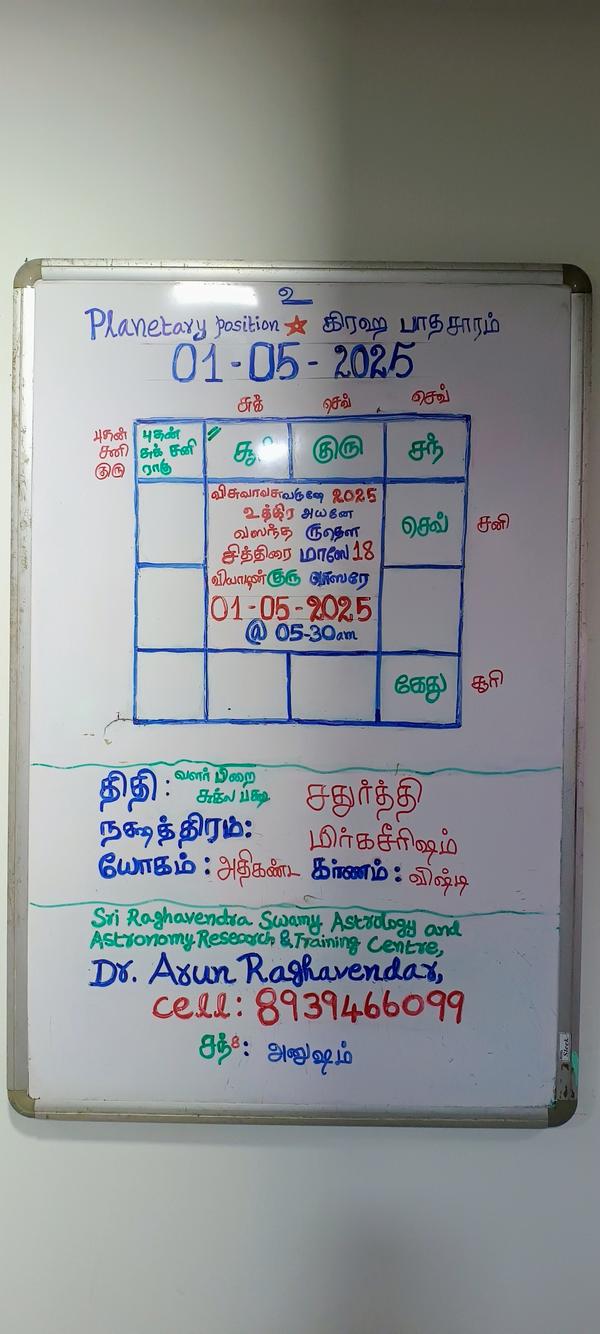 உ
Planetary position ☆ கிரஹ பாதசாரம்
01-05-2025
சுக் செவ் செவ்
புதன்
சனி
குரு
புதன்
சுக் சனி
ராகு
சூரி குரு சந்
விசுவாவசுவருஷே 2025
உத்திர அயனே
வஸந்த ருதௌ
செவ் சனி
சித்திரை மாஸே 18
குரு வாஸரே
01-05-2025
@ 05-30am
கேது சூரி
திதி: வளர் பிறை சதுர்த்தி
சுக்ல பக்ஷ
நக்ஷத்திரம்: மிர்கசீரிஷம்
யோகம்: அதிகண்ட கர்ணம்: விஷ்டி
Sri Raghavendra Swamy Astrology and
Astronomy Research & Training Centre,
Dr. Arun Raghavendar,
cell: 8939466099
சந்8: அனுஷம்